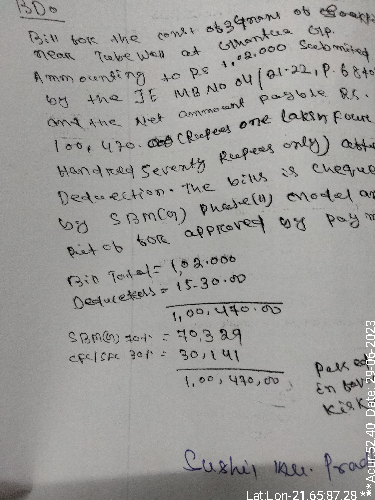 BDO
Bill for the const of 3 Gnant of Soakp
near Tubewell at Ghantua Gp.
Ammounting to Rs 1,02,000 Submited
by the JE MB No 04/21-22, P. 68 to
and the Net ammount payble Rs.
100,470.00 (Rupees one Laksh Four
Handred Seventy Rupees only) after
Deducection. The bills is cheque
by SBM(G) Phase(II) model an
for approved by paym
Bill Total = 1,02.000
Deductions = 15-30.00
1,00,470.00
SBM(G) 70% = 70,329
CFC/SFC 30% = 30,141
1,00,470,00
in fav
Sushil Ku. Prad
Lat:Lon-21.65:87.28
**Acur:52.40 Date: 29-06-2023